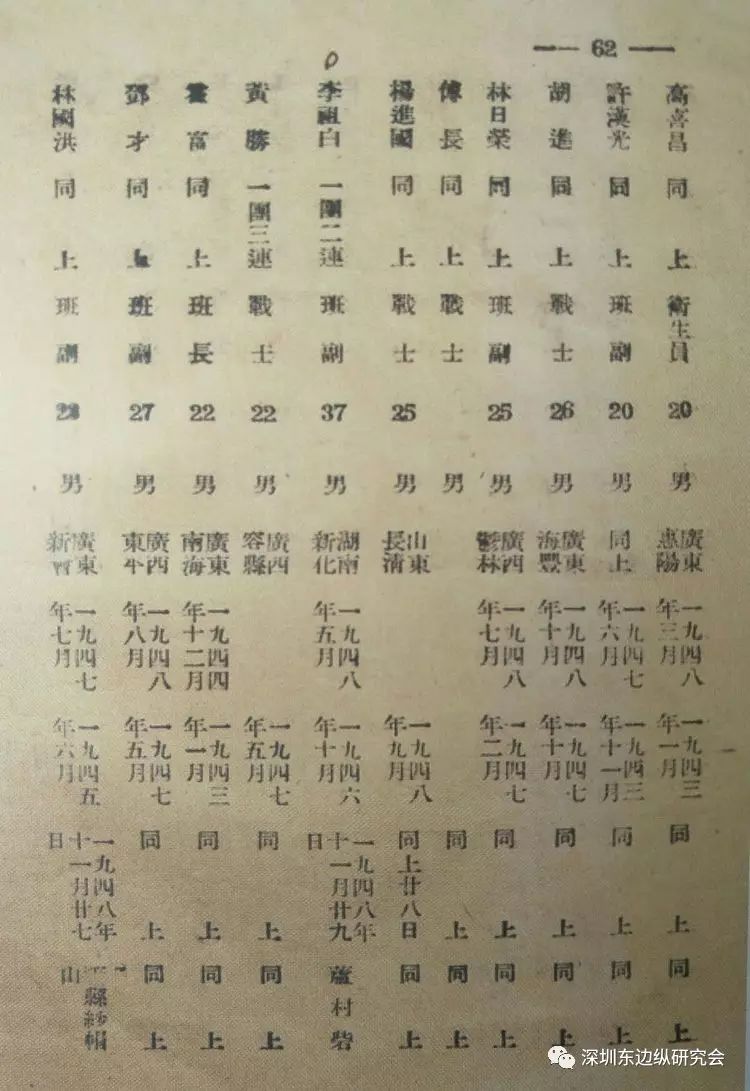 — 62 —
高喜昌 同上 衛生員 20 男 廣東惠陽 一九四八年三月 一九四三年一月 同上 同上
許漢光 同上 班副 20 男 同上 一九四七年六月 一九四三年十一月 同上 同上
胡進 同上 戰士 26 男 廣東海豐 一九四八年十月 一九四七年十月 同上 同上
林日榮 同上 班副 25 男 廣西鬱林 一九四八年七月 一九四七年二月 同上 同上
傅長 同上 戰士 男 同上 同上
楊進國 同上 戰士 25 男 山東長清 一九四八年九月 同上廿八日 同上
李祖白 一團二連 班副 37 男 湖南新化 一九四八年五月 一九四六年十月 一九四八年十一月廿九日 蘆村砦
黃勝 一團三連 戰士 22 男 廣西容縣 一九四七年五月 同上 同上
霍富 同上 班長 22 男 廣東南海 一九四四年十二月 一九四三年一月 同上 同上
鄧才 同上 班副 27 男 廣西東平 一九四八年八月 一九四七年五月 同上 同上
林國洪 同上 班副 男 廣東新會 一九四七年七月 一九四五年六月 一九四八年十一月廿七日 縣 山
深圳东边纵研究会